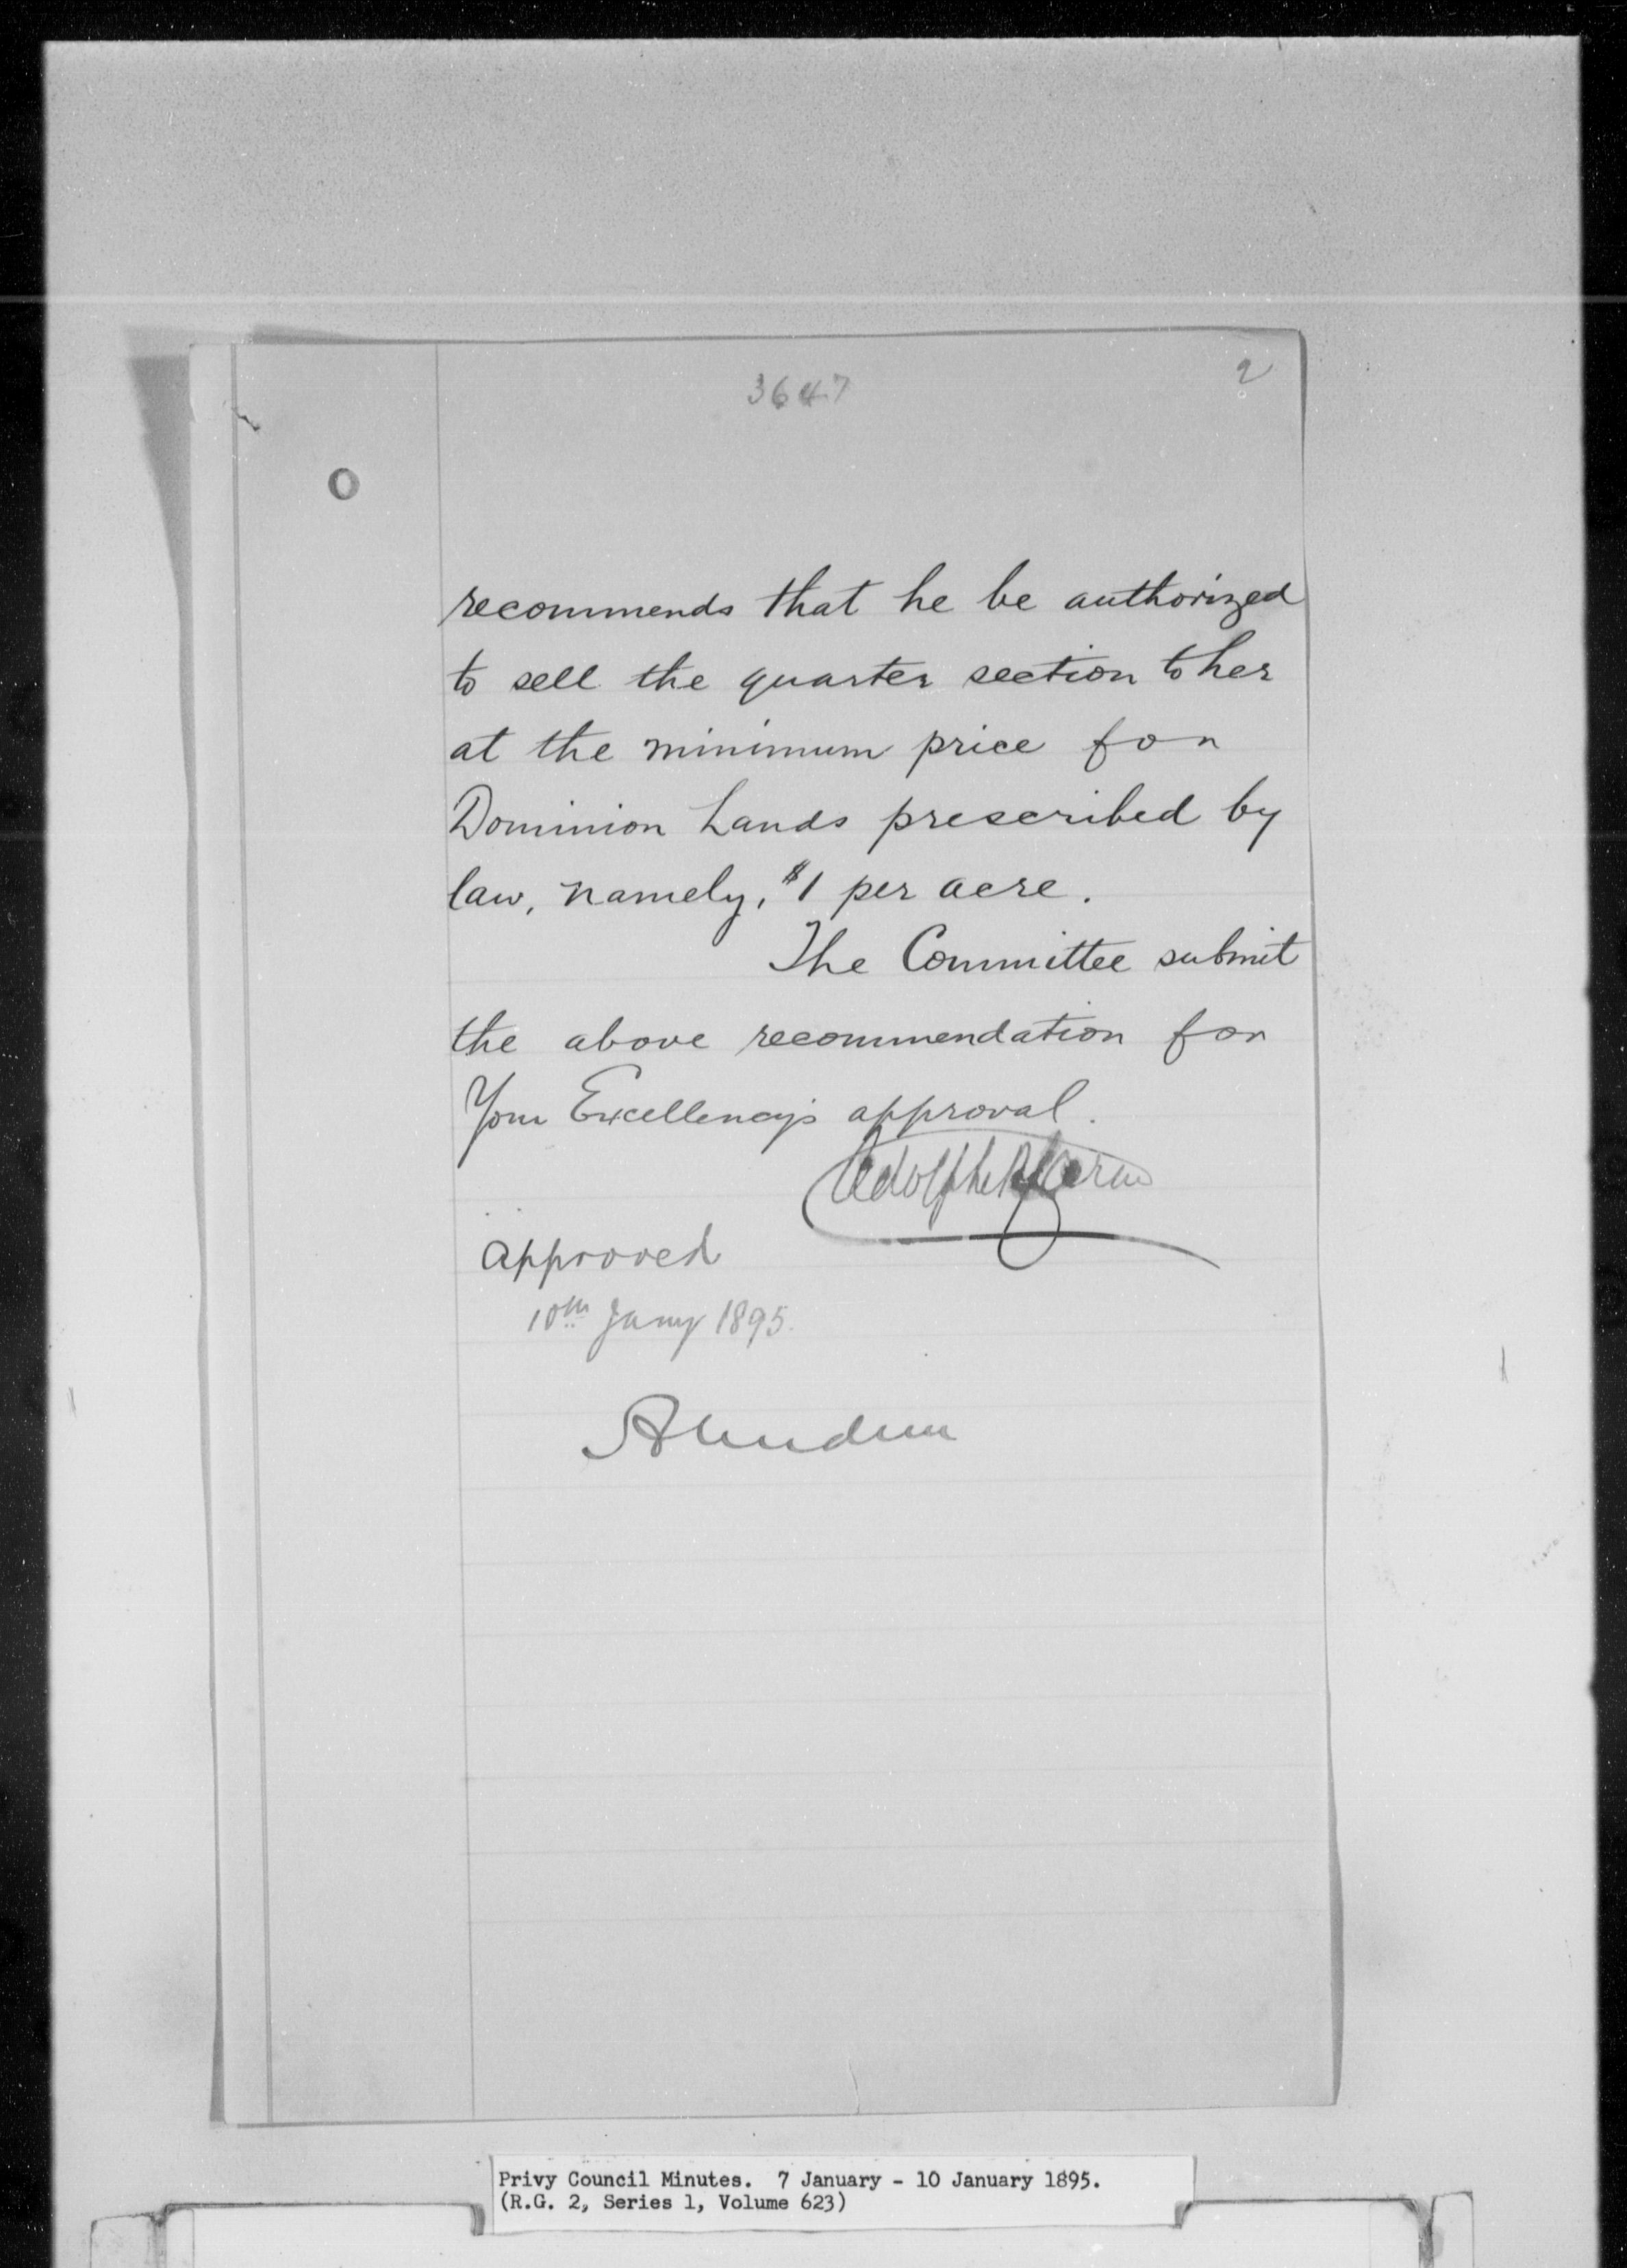 3647
2
recommends that he be authorized
to sell the quarter section to her
at the minimum price for
Dominion Lands prescribed by
law, namely, $1 per acre.
The Committee submit
the above recommendation for
Your Excellency's approval.
Adolphe P. Caron
Approved
10th Jany 1895.
Aberdeen
Privy Council Minutes. 7 January - 10 January 1895.
(R.G. 2, Series 1, Volume 623)